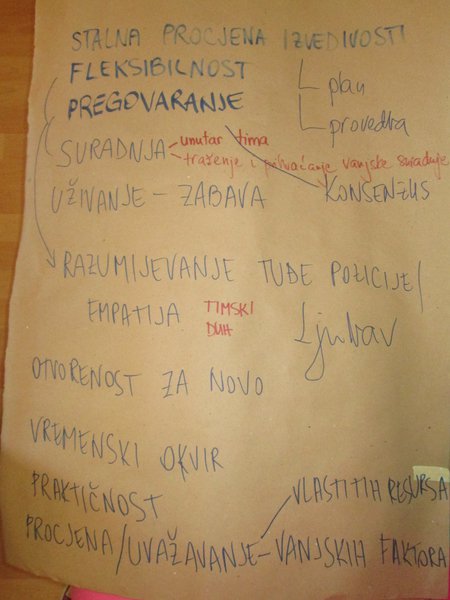 STALNA PROCJENA IZVEDIVOSTI
FLEKSIBILNOST
plan
PREGOVARANJE
provedba
SURADNJA
unutar tima
traženje i prihvaćanje vanjske suradnje
UŽIVANJE - ZABAVA
KONSENZUS
RAZUMIJEVANJE TUĐE POZICIJE/
EMPATIJA
TIMSKI
DUH
Ljubav
OTVORENOST ZA NOVO
VREMENSKI OKVIR
PRAKTIČNOST
VLASTITIH RESURSA
PROCJENA/UVAŽAVANJE - VANJSKIH FAKTORA